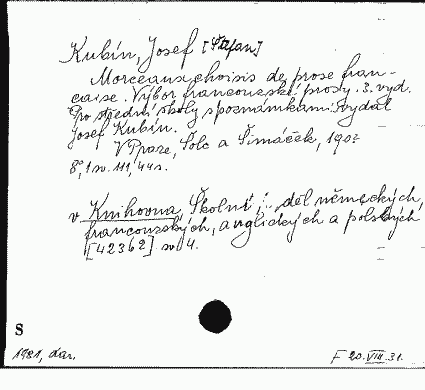 Kubín, Josef [Štěfan]
Morceaux choisis de prose fran-
caise. Výbor francouzské prosy. 3. vyd.
Pro střední školy s poznámkami vydal
Josef Kubín.
V Praze, Šolc a Šimáček, 190?
8°, 1 sv. 111, 44 s.
v Knihovna Školní děl německých,
francouzských, anglických a polských
[42362] sv. 4.
S
1981, dar.
F 20. VIII. 31.